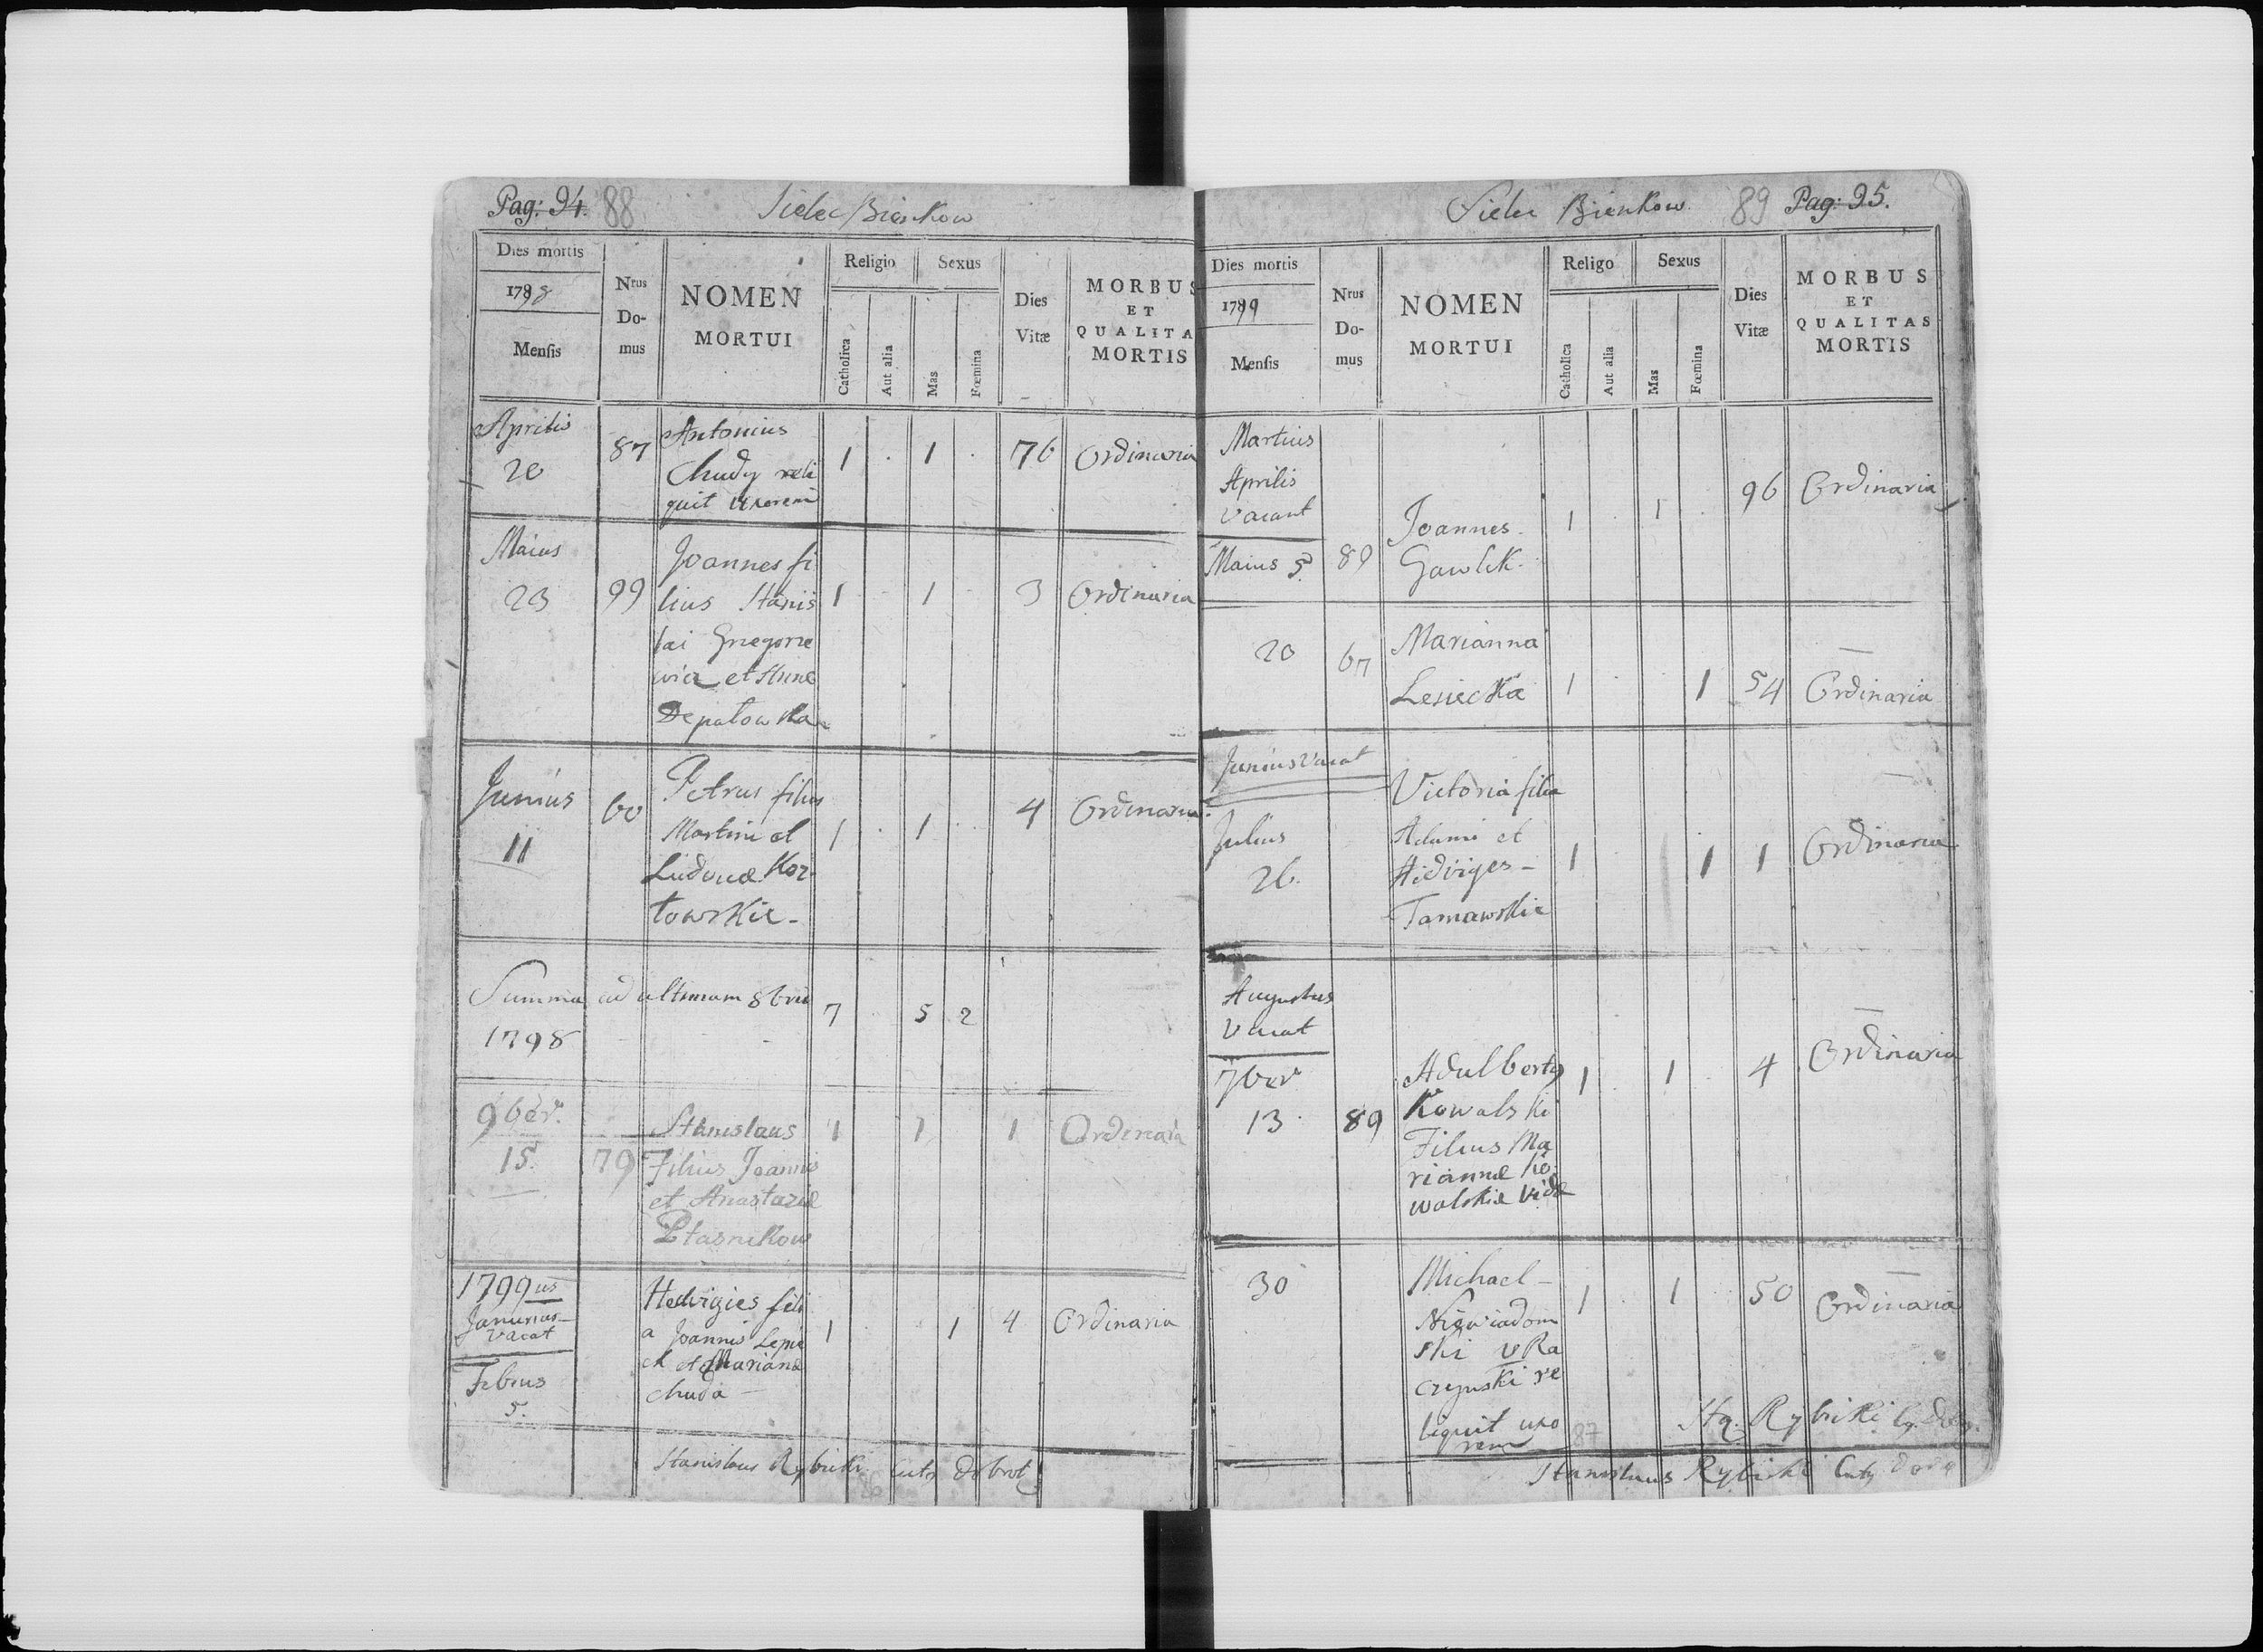 Pag: 94. 88 Sielec Bienkow
Dies mortis
1798
Mensis
Nrus
Do-
mus
NOMEN
MORTUI
Religio
Catholica
Aut alia
Sexus
Mas
Fœmina
Dies
Vitæ
MORBUS
ET
QUALITA
MORTIS
Aprilis
20
87
Antonius
Chudy reli
quit uxorem
1 . 1 . 76 Ordinaria
Maius
23
99
Joannes fi
lius Stanis
lai Grzegorze
wicz et Annæ
Depatowska
1 . 1 . 3 Ordinaria
Junius
11
60
Petrus filius
Martini et
Ludovicæ Koz
towskie -
1 . 1 . 4 Ordinaria
Summa ad ultimam 8bris
1798
7 . 5 2
9ber.
15.
79
Stanislaus
Filius Joannis
et Anastaziæ
Ptasnikow
1 1 1 Ordinaria
1799us
Januarius
vacat
Febrius
5.
Hedvigies fili
a Joannis Lepie
ck et Marianæ
Chuda -
1 . . 1 4 Ordinaria
Stanislaus Rybicki
Sielec Bienkow 89 Pag: 95.
Dies mortis
1799
Mensis
Nrus
Do-
mus
NOMEN
MORTUI
Religo
Catholica
Aut alia
Sexus
Mas
Fœmina
Dies
Vitæ
MORBUS
ET
QUALITAS
MORTIS
Martius
Aprilis
vacant
Maius 5.
89
Joannes
Gawlik.
1 . 1 . 96 Ordinaria
20
67
Marianna
Lesiecka
1 . . 1 54 Ordinaria
Junius vacat
Julius
26.
Victoria filia
Adami et
Hedviges -
Tarnawskie
1 . 1 1 Ordinaria
Augustus
vacat
7ber
13.
89
Adalbertg
Kowalski
Filius Ma
riannæ Ko
walskiæ Vidæ
1 . 1 . 4 Ordinaria
30
Michael -
Niewiadom
ski v Ra
czynski re
liquit uxo
rem
1 . 1 . 50 Ordinaria
87
Rybicki
Stanislaus Rybicki